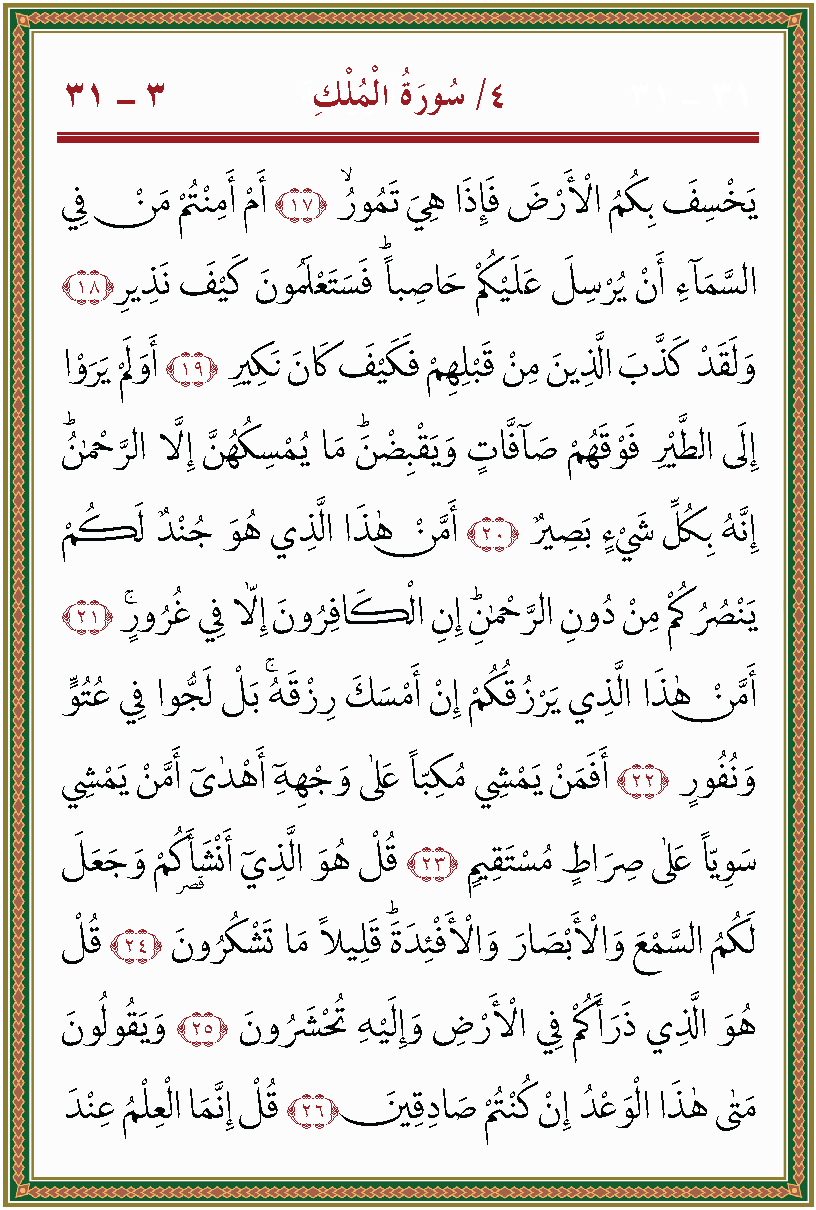 ٤/ سُورَةُ الْمُلْكِ ٣ – ٣١
يَخْسِفَ بِكُمُ الْأَرْضَ فَإِذَا هِيَ تَمُورُۙ ﴿١٧﴾ أَمْ أَمِنْتُمْ مَنْ فِي
السَّمَآءِ أَنْ يُرْسِلَ عَلَيْكُمْ حَاصِباًؕ فَسَتَعْلَمُونَ كَيْفَ نَذِيرِ ﴿١٨﴾
وَلَقَدْ كَذَّبَ الَّذِينَ مِنْ قَبْلِهِمْ فَكَيْفَ كَانَ نَكِيرِ ﴿١٩﴾ أَوَلَمْ يَرَوْا
إِلَى الطَّيْرِ فَوْقَهُمْ صَآفَّاتٍ وَيَقْبِضْنَؕ مَا يُمْسِكُهُنَّ إِلَّا الرَّحْمٰنُؕ
إِنَّهُ بِكُلِّ شَيْءٍ بَصِيرٌ ﴿٢٠﴾ أَمَّنْ هٰذَا الَّذِي هُوَ جُنْدٌ لَكُمْ
يَنْصُرُكُمْ مِنْ دُونِ الرَّحْمٰنِؕ إِنِ الْكَافِرُونَ إِلَّا فِي غُرُورٍۚ ﴿٢١﴾
أَمَّنْ هٰذَا الَّذِي يَرْزُقُكُمْ إِنْ أَمْسَكَ رِزْقَهُۚ بَلْ لَجُّوا فِي عُتُوٍّ
وَنُفُورٍ ﴿٢٢﴾ أَفَمَنْ يَمْشِي مُكِبّاً عَلٰى وَجْهِهِٓ أَهْدٰىٓ أَمَّنْ يَمْشِي
سَوِيّاً عَلٰى صِرَاطٍ مُسْتَقِيمٍ ﴿٢٣﴾ قُلْ هُوَ الَّذِيٓ أَنْشَأَكُمْ وَجَعَلَ
لَكُمُ السَّمْعَ وَالْأَبْصَارَ وَالْأَفْئِدَةَؕ قَلِيلاً مَا تَشْكُرُونَ ﴿٢٤﴾ قُلْ
هُوَ الَّذِي ذَرَأَكُمْ فِي الْأَرْضِ وَإِلَيْهِ تُحْشَرُونَ ﴿٢٥﴾ وَيَقُولُونَ
مَتٰى هٰذَا الْوَعْدُ إِنْ كُنْتُمْ صَادِقِينَ ﴿٢٦﴾ قُلْ إِنَّمَا الْعِلْمُ عِنْدَ